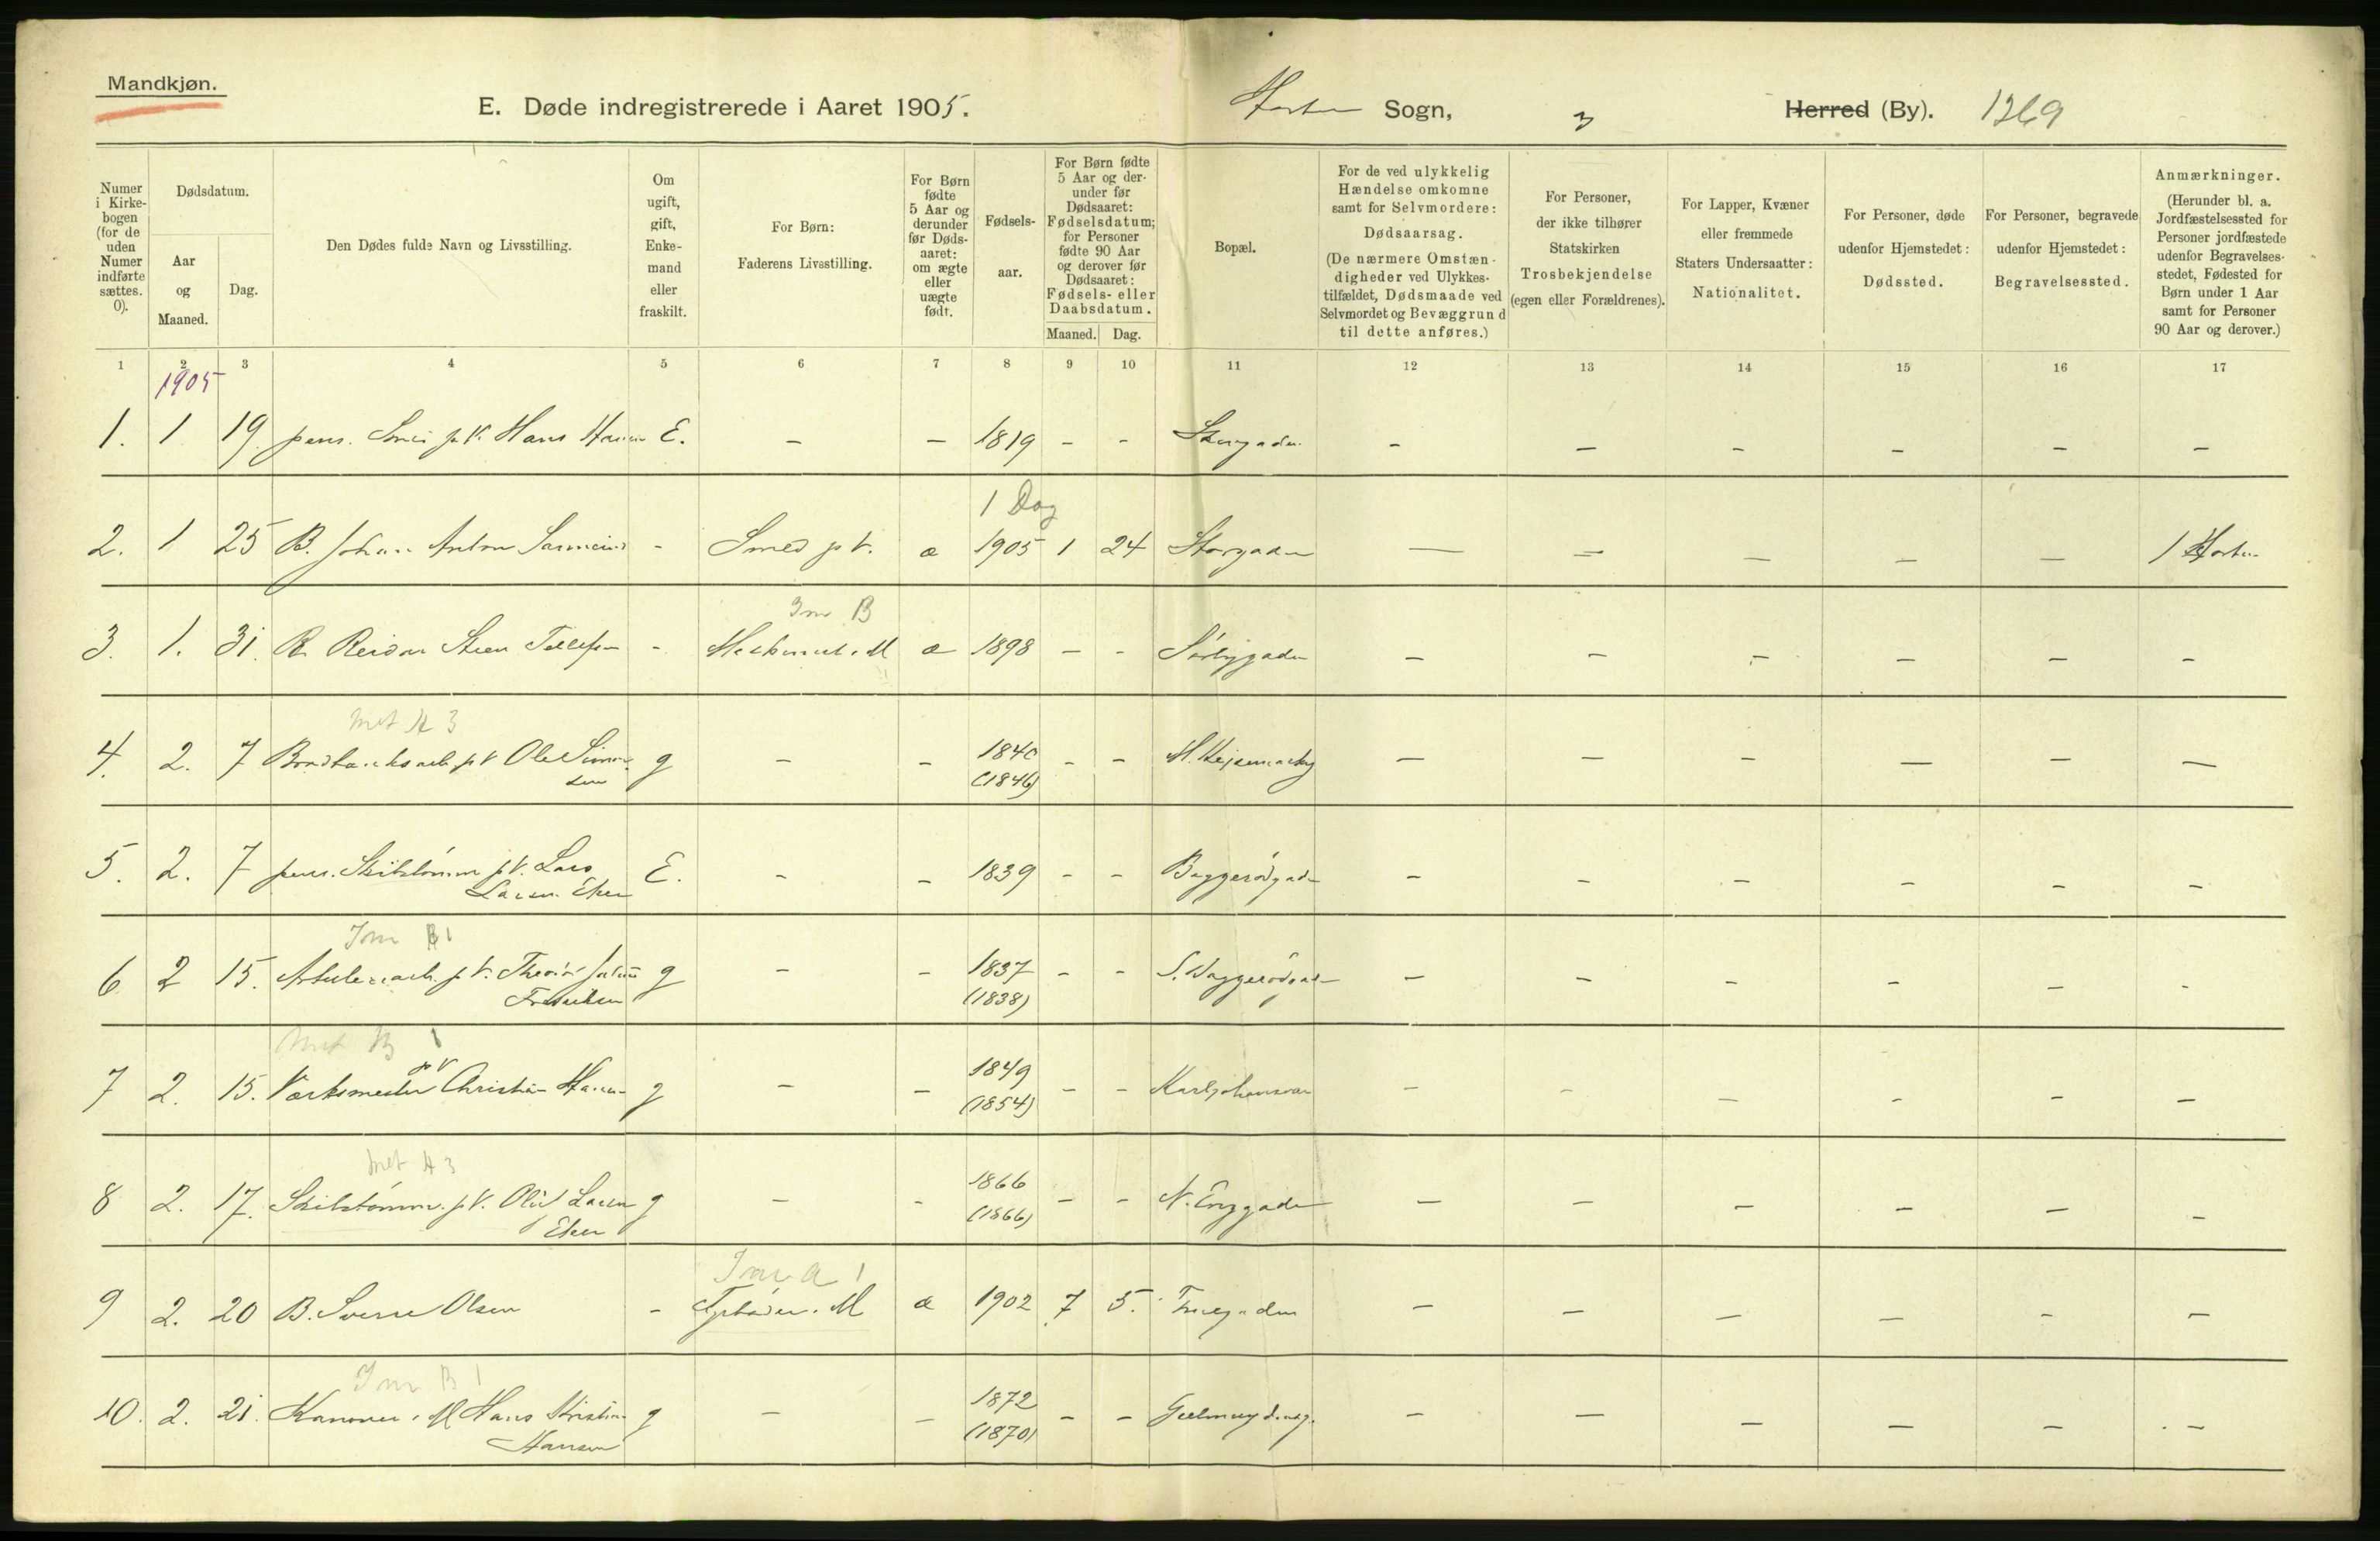 Mandkjøn.
E. Døde indregistrerede i Aaret 1905. Horten Sogn, 3 Herred (By). 1369
Numer i Kirkebogen (for de uden Numer indførte sættes. 0).
Dødsdatum.
Aar og Maaned.
Dag.
Den Dødes fulde Navn og Livsstilling.
Om ugift, gift, Enkemand eller fraskilt.
For Børn:
Faderens Livsstilling.
For Børn fødte 5 Aar og derunder før Dødsaaret: om ægte eller uægte født.
Fødselsaar.
For Børn fødte 5 Aar og derunder før Dødsaaret: Fødselsdatum; for Personer fødte 90 Aar og derover før Dødsaaret: Fødsels- eller Daabsdatum.
Maaned. Dag.
Bopæl.
For de ved ulykkelig Hændelse omkomne samt for Selvmordere: Dødsaarsag. (De nærmere Omstændigheder ved Ulykkestilfældet, Dødsmaade ved Selvmordet og Bevæggrund til dette anføres.)
For Personer, der ikke tilhører Statskirken Trosbekjendelse (egen eller Forældrenes).
For Lapper, Kvæner eller fremmede Staters Undersaatter: Nationalitet.
For Personer, døde udenfor Hjemstedet: Dødssted.
For Personer, begravede udenfor Hjemstedet: Begravelsessted.
Anmærkninger. (Herunder bl. a. Jordfæstelsessted for Personer jordfæstede udenfor Begravelsesstedet, Fødested for Børn under 1 Aar samt for Personer 90 Aar og derover.)
1 2 3 4 5 6 7 8 9 10 11 12 13 14 15 16 17
1905
1. 1 19. pens. Smed p. V. Hans Hansen E. - - 1819 - - Storgaden - - - - - -
1 Dag
2. 1 25 B. Johan Anton - Smed p V. æ 1905 1 24 Storgaden - - - - - 1 Horten
B
3. 1. 31. B. Reidar Steen Tellefsen - M æ 1898 - - Sørbygaden - - - - - -
A 3
4. 2. 7 p V Ole Simonsen g - - 1840 (1846) - - - - - - - -
5. 2. 7 pens. Skibstømm p V. Lars Larsen Eken E. - - 1839 - - Baggerødgaden - - - - - -
B 1
6 2 15. p V. Fredriksen g - - 1837 (1838) - - - - - - - -
B 1
7 2. 15. Værksmester p V Christian Hansen g - - 1849 (1854) - - Karljohansvær - - - - - -
A 3
8 2. 17. Skibstømm. p V. Larsen Eken g - - 1866 (1866) - - N. Enggaden - - - - - -
A 1
9 2. 20 B. Sverre Olsen - M æ 1902 7 5. - - - - - -
B 1
10. 2. 21. Kanoner i M Hans Kristian Hansen g - - 1872 (1870) - - Geelmuydensg. - - - - - -